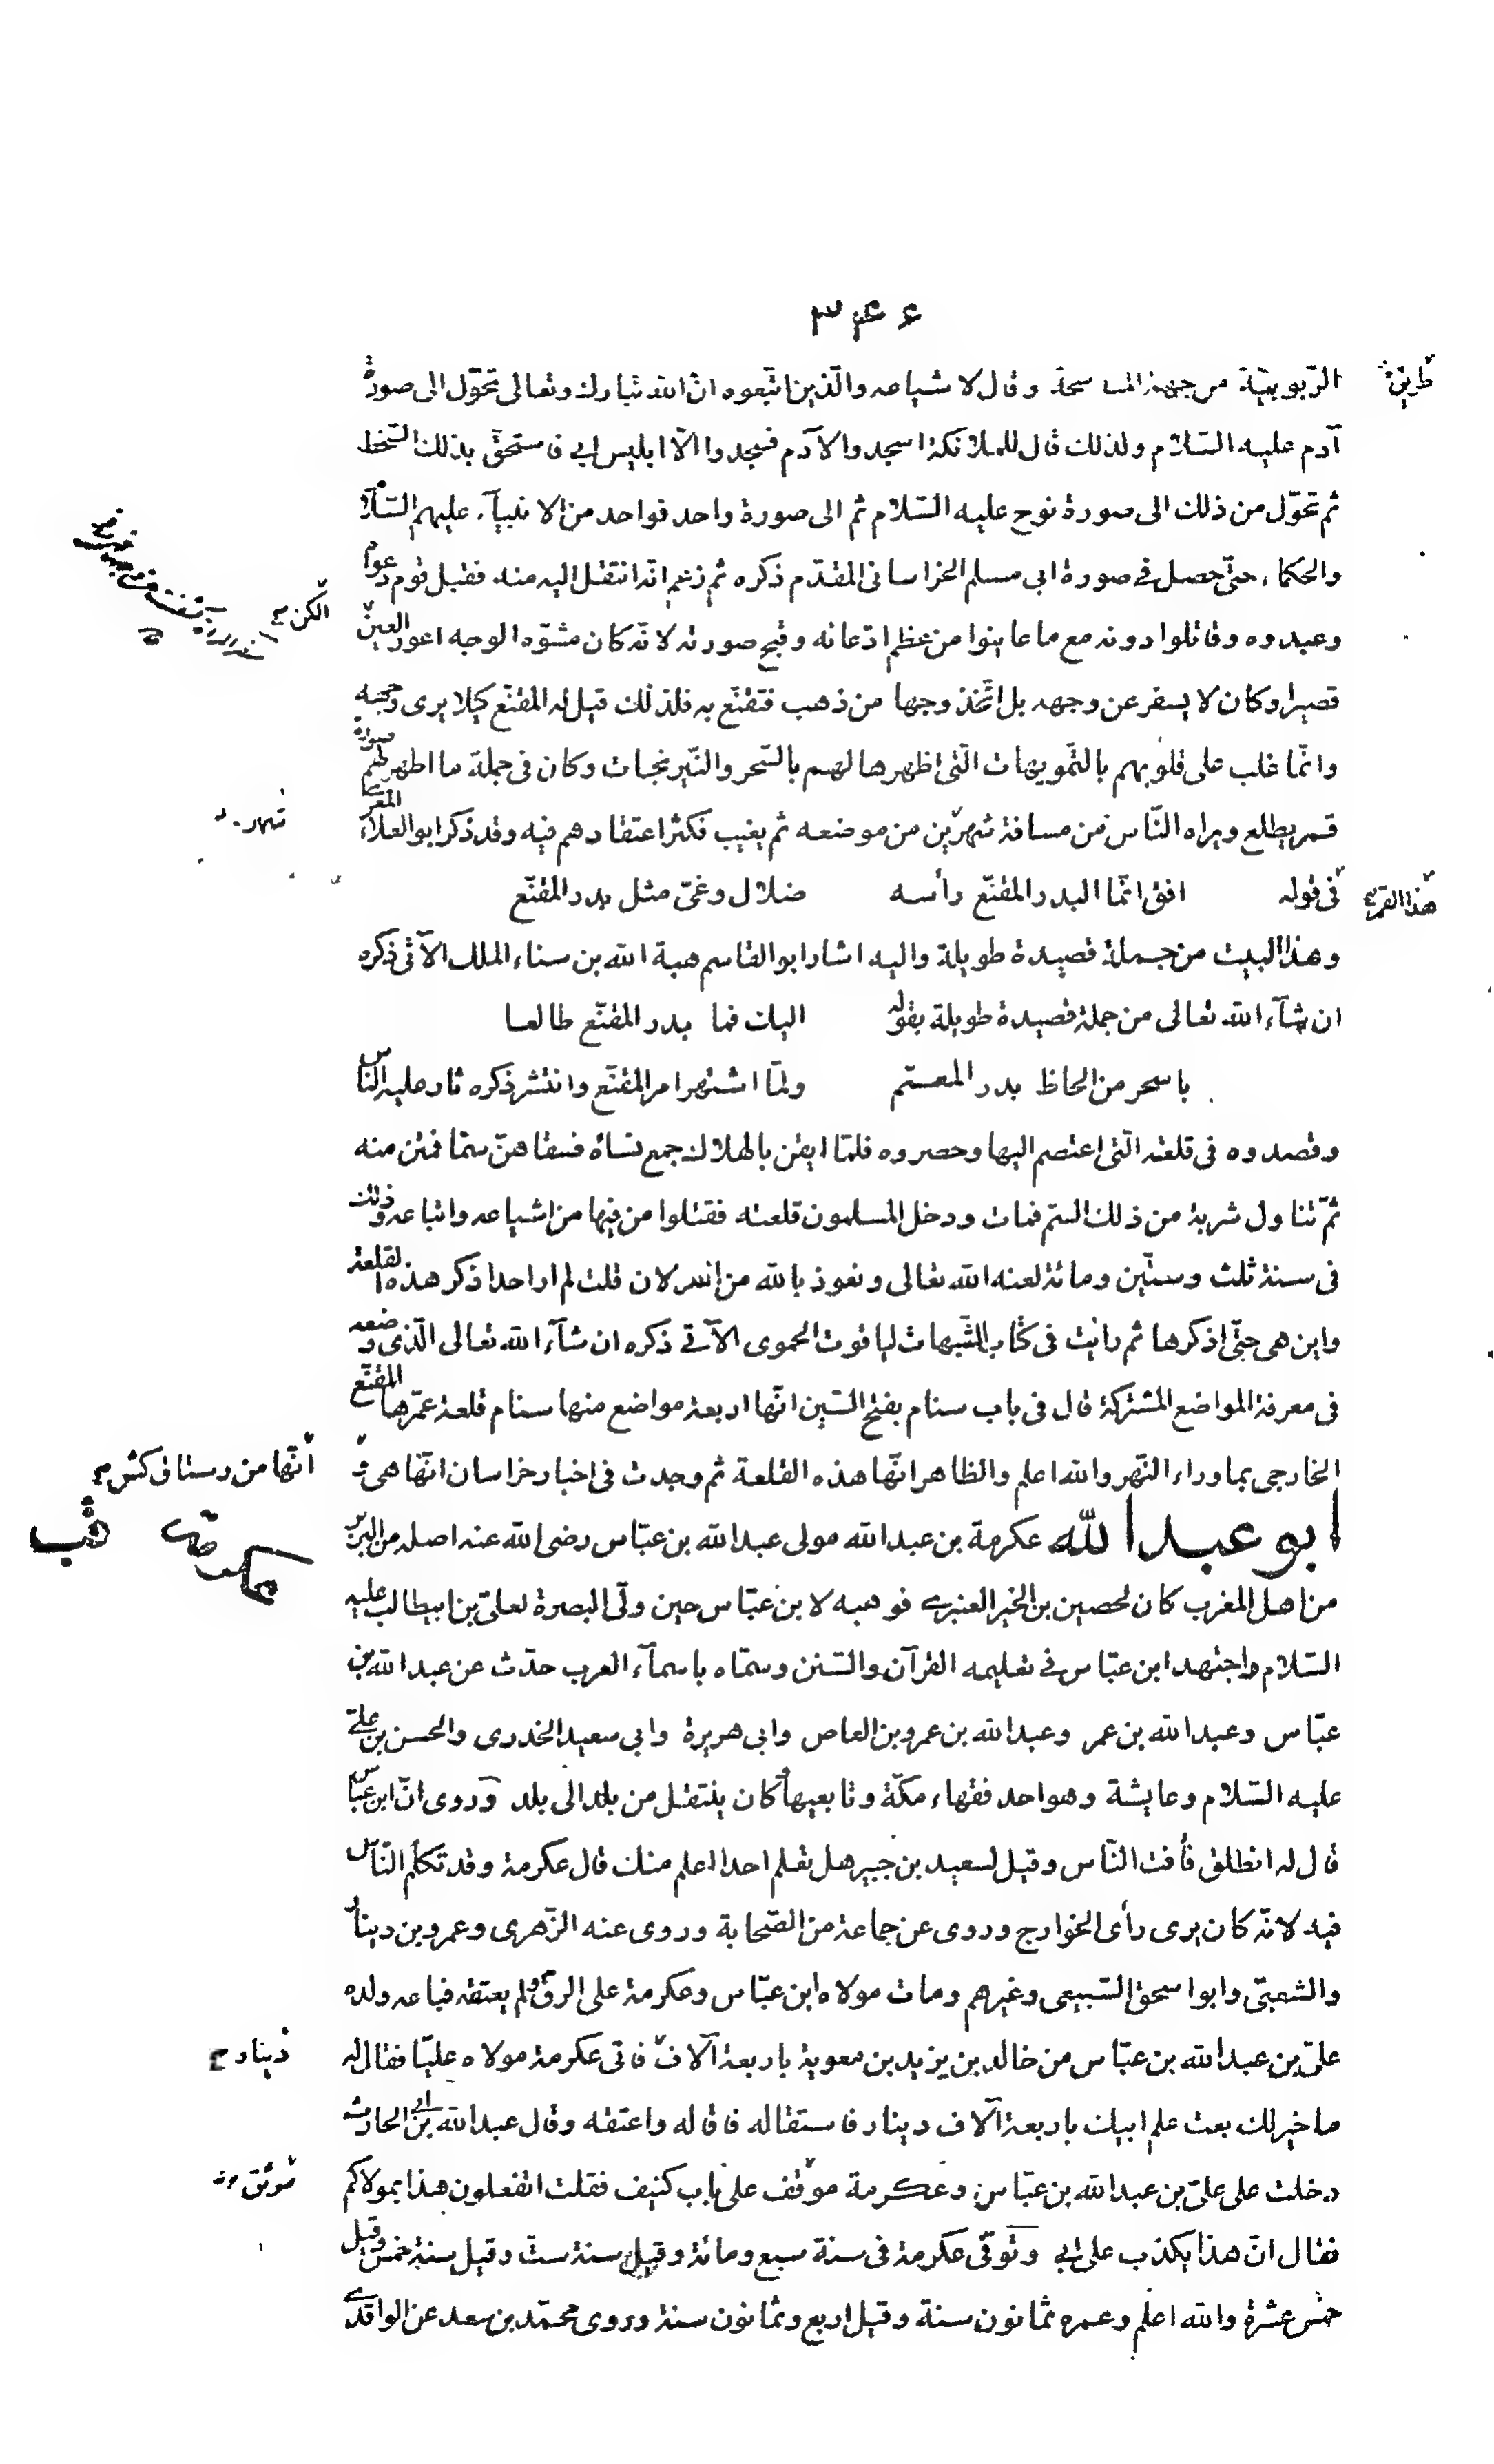 ٣٤۶
الرّبوبيّة من جهة المناسخة وقال لاشياعه والّذين اتّبعوه انّ الله تبارك وتعالى تحوّل الى صورة
آدم عليه السّلام ولذلك قال للملائكة اسجدوا لآدم فسجدوا الّا ابليس ابى فاستحقّ بذلك السّخط
ثم تحوّل من ذلك الى صورة نوح عليه السّلام ثم الى صورة واحد فواحد من الانبيآء عليهم السّلا
والحكماء حتى حصل فى صورة ابى مسلم الخراسانى المقدّم ذكره ثم زعم انّه انتقل اليه منه فقبل قوم دعواه
وعبدوه وقاتلوا دونه مع ما عاينوا من عظم ادّعائه وقبح صورته لانّه كان مشوّه الوجه اعور العين
قصيرا وكان لا يسفر عن وجهه بل اتّخذ وجها من ذهب فتقنّع به فلذلك قيل له المقنّع كيلا يرى وجهه
وانّما غلب على قلوبهم بالتّمويهات الّتى اظهرها لهم بالسّحر والنّيرنجات وكان فى جملة ما اظهر لهم صورة
قمر يطلع ويراه النّاس من مسافة شهرين من موضعه ثم يغيب فكثر اعتقادهم فيه وقد ذكر ابو العلاء المعرى
هذا القمر
فى قوله افق انّما البدر المقنّع رأسه ضلال وغىّ مثل بدر المقنّع
وهذا البيت من جملة قصيدة طويلة واليه اشار ابو القاسم هبة الله بن سناء الملك الآتى ذكره
ان شآء الله تعالى من جملة قصيدة طويلة بقوله اليك فما بدر المقنّع طالعا
باسحر من الحاظ بدر المعمّم ولمّا اشتهر امر المقنّع وانتشر ذكره ثار عليه النّاس
وقصدوه فى قلعته الّتى اعتصم اليها وحصروه فلمّا ايقن بالهلاك جمع نساه فسقاهنّ سمّا فمتن منه
ثمّ تناول شربة من ذلك السّم فمات ودخل المسلمون قلعته فقتلوا من فيها من اشياعه واتباعه وذلك
فى سنة ثلث وستّين ومائة لعنه الله تعالى ونعوذ بالله من الخذلان قلت لم ار احدا ذكر هذه القلعة
واين هى حتّى اذكرها ثم رأيت فى كتاب الشّبهات لياقوت الحموى الآتى ذكره ان شآء الله تعالى الّذى وضعه
فى معرفة المواضع المشتركة قال فى باب سنام بفتح السّين انّها اربعة مواضع منها سنام قلعة عمّرها المقنّع
الخارجى بماوراء النّهر والله اعلم والظاهر انّها هذه القلعة ثم وجدت فى اخبار خراسان انّها هى و
انّها من رستاق كش
ابو عبد الله عكرمة بن عبد الله مولى عبد الله بن عبّاس رضى الله عنه اصله من البربر
عكرمة
من اهل المغرب كان لحصين بن الخير العنبرى فوهبه لابن عبّاس حين ولّى البصرة لعلىّ بن ابيطالب عليه
السّلام واجتهد ابن عبّاس فى تعليمه القرآن والسّنن وسمّاه باسمآء العرب حدّث عن عبد الله بن
عبّاس وعبد الله بن عمر وعبد الله بن عمرو بن العاص وابى هريرة وابى سعيد الخدرى والحسن بن على
عليه السّلام وعايشة وهو احد فقهاء مكّة وتابعيها كان ينتقل من بلد الى بلد وروى انّ ابن عبّاس
قال له انطلق فأفت النّاس وقيل لسعيد بن جبير هل تعلم احدا اعلم منك قال عكرمة وقد تكلّم النّاس
فيه لانّه كان يرى رأى الخوارج وروى عن جماعة من الصّحابة وروى عنه الزّهرى وعمرو بن دينار
والشّعبىّ وابو اسحق السّبيعى وغيرهم ومات مولاه ابن عبّاس وعكرمة على الرقّ ولم يعتقه فباعه ولده
علىّ بن عبد الله بن عبّاس من خالد بن يزيد بن معوية باربعة آلاف فاتى عكرمة مولاه عليّا فقال له
دينار
ما خير لك بعت علم ابيك باربعة آلاف دينار فاستقاله فاقاله واعتقه وقال عبد الله بن ابى الحارث
دخلت على علىّ بن عبد الله بن عبّاس وعكرمة موقف على باب كنيف فقلت اتفعلون هذا بمولاكم
موثق
فقال انّ هذا يكذب على ابى وتوفّى عكرمة فى سنة سبع ومائة وقيل سنة ستّ وقيل سنة خمس وقيل
خمس عشرة والله اعلم وعمره ثمانون سنة وقيل اربع وثمانون سنة وروى محمّد بن سعد عن الواقدى